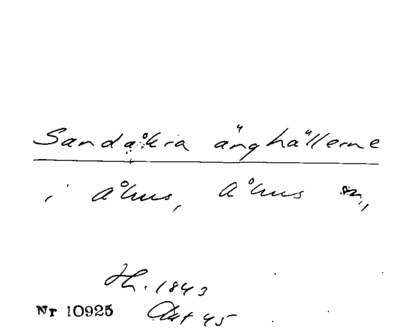 Sandåkra änghällerne
i Åhus, Åhus sn,,
H. 1843
Nr 10925 Akt 45